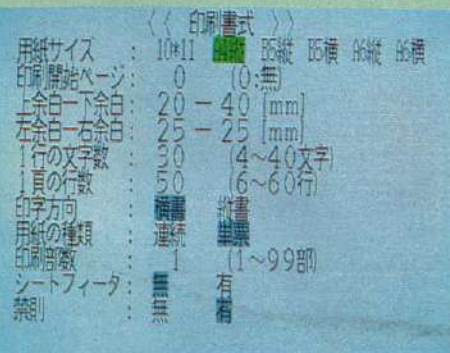 〈〈 印刷書式 〉〉
用紙サイズ : 10*11 A4縦 B5縦 B5横 A6縦 A6横
印刷開始ページ: 0 (0:無)
上余白ー下余白: 20 ー 40 [mm]
左余白ー右余白: 25 ー 25 [mm]
1行の文字数 : 30 (4〜40文字)
1頁の行数 : 50 (6〜60行)
印字方向 : 横書 縦書
用紙の種類 : 連続 単票
印刷部数 : 1 (1〜99部)
シートフィータ: 無 有
禁則 : 無 有